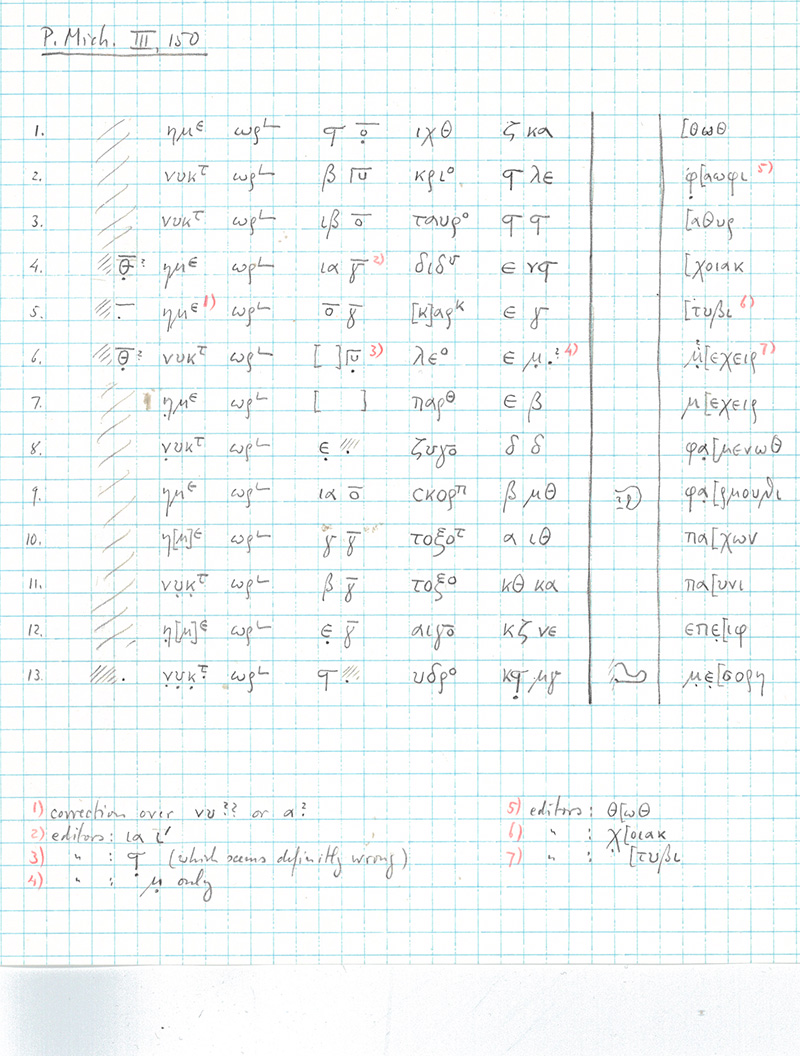 P. Mich. III, 150
1. ημ^ε ωρ^L ϥ ọ̄ ιχθ ζ κα [θωθ
2. νυκ^τ ωρ^L β Γῡ κριο ϥ λε φ̣[αωφι 5)
3. νυκ^τ ωρ^L ιβ ō ταυρο ϥ ϥ [αθυρ
4. θ̣̄? ημ^ε ωρ^L ια γ̄ 2) διδυ ε νϥ [χοιακ
5. ημ^ε 1) ωρ^L ō γ̄ [κ]αρ^κ ε γ [τυβι 6)
6. θ̣̄? νυκ^τ ωρ^L [ ] Γῡ̣ 3) λεο ε μ̣ .? 4) μ̣[εχειρ 7)
7. η̣μ^ε ωρ^L [ ] παρ^θ ε β μ[εχειρ
8. ν̣υκ^τ ωρ^L ε̣ ζυγō δ δ φα̣[μενωθ
9. ημ^ε ωρ^L ια ō σκορ^π β μθ φα̣[ρμουθι
10. η[μ]^ε ωρ^L γ γ̄ τοξο^τ α ιθ πα[χων
11. ν̣υ̣κ̣^τ ωρ^L β γ̄ τοξο κθ κα πα[υνι
12. η̣[μ]^ε ωρ^L ε̣ γ̄ αιγō κζ νε επε̣[ιφ
13. . ν̣υ̣κ̣^τ ωρ^L ϥ υδρο κϥ̣ μγ μ̣ε̣[σορη
1) correction over νυ?? or α?
2) editors: ια ι'
3) " : ϥ̣ (which seems definitly wrong)
4) " : μ̣ only
5) editors: θ[ωθ
6) " : χ̣[οιακ
7) " : [τυβι